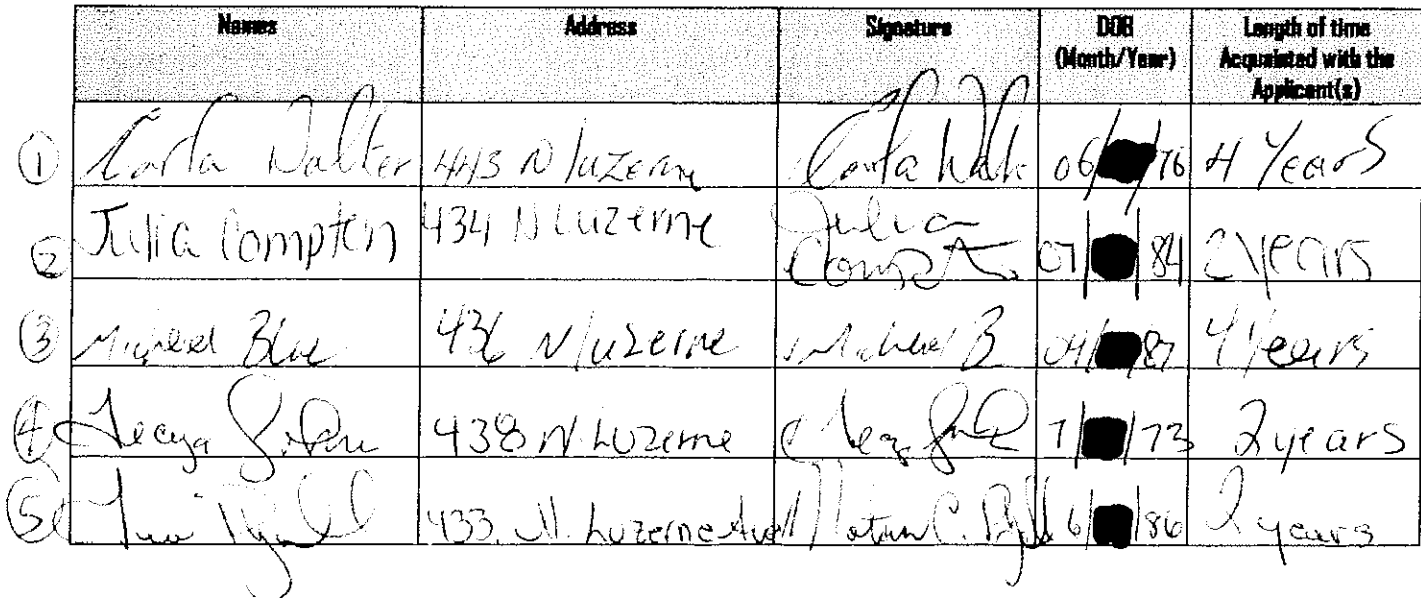 Names Address Signature DOB Length of time
(Month/Year) Acquainted with the
Applicant(s)
① Carla Walter 443 N luzerne Carla Walt 06/ /76 4 Years
② Julia Compton 434 N Luzerne Julia Compt 07/ /84 2 years
③ Michael Blue 436 N luzerne Michael B 04/ /87 4 years
④ 438 N. Luzerne 7/ /73 2 years
⑤ 433. N. Luzerne Ave 6/ /86 2 years